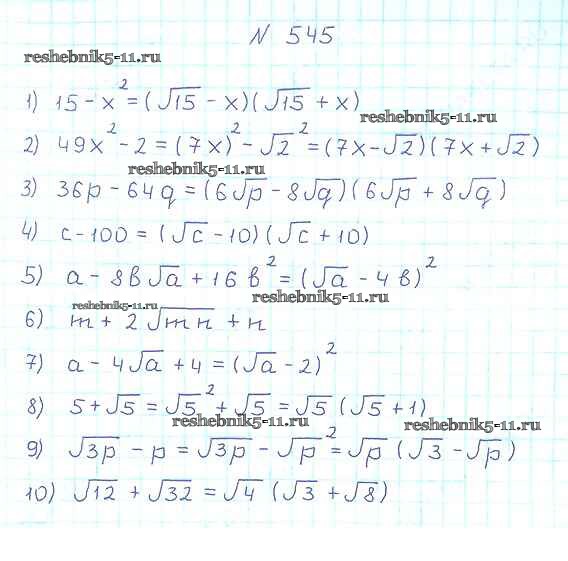 N 545
reshebnik5-11.ru
1) 15 - x² = (√15 - x)(√15 + x)
reshebnik5-11.ru
2) 49x² - 2 = (7x)² - √2² = (7x - √2)(7x + √2)
reshebnik5-11.ru
3) 36p - 64q = (6√p - 8√q)(6√p + 8√q)
4) c - 100 = (√c - 10)(√c + 10)
5) a - 8b√a + 16b² = (√a - 4b)²
reshebnik5-11.ru
reshebnik5-11.ru
6) m + 2√mn + n
7) a - 4√a + 4 = (√a - 2)²
8) 5 + √5 = √5² + √5 = √5 (√5 + 1)
reshebnik5-11.ru
reshebnik5-11.ru
9) √3p - p = √3p - √p² = √p (√3 - √p)
10) √12 + √32 = √4 (√3 + √8)